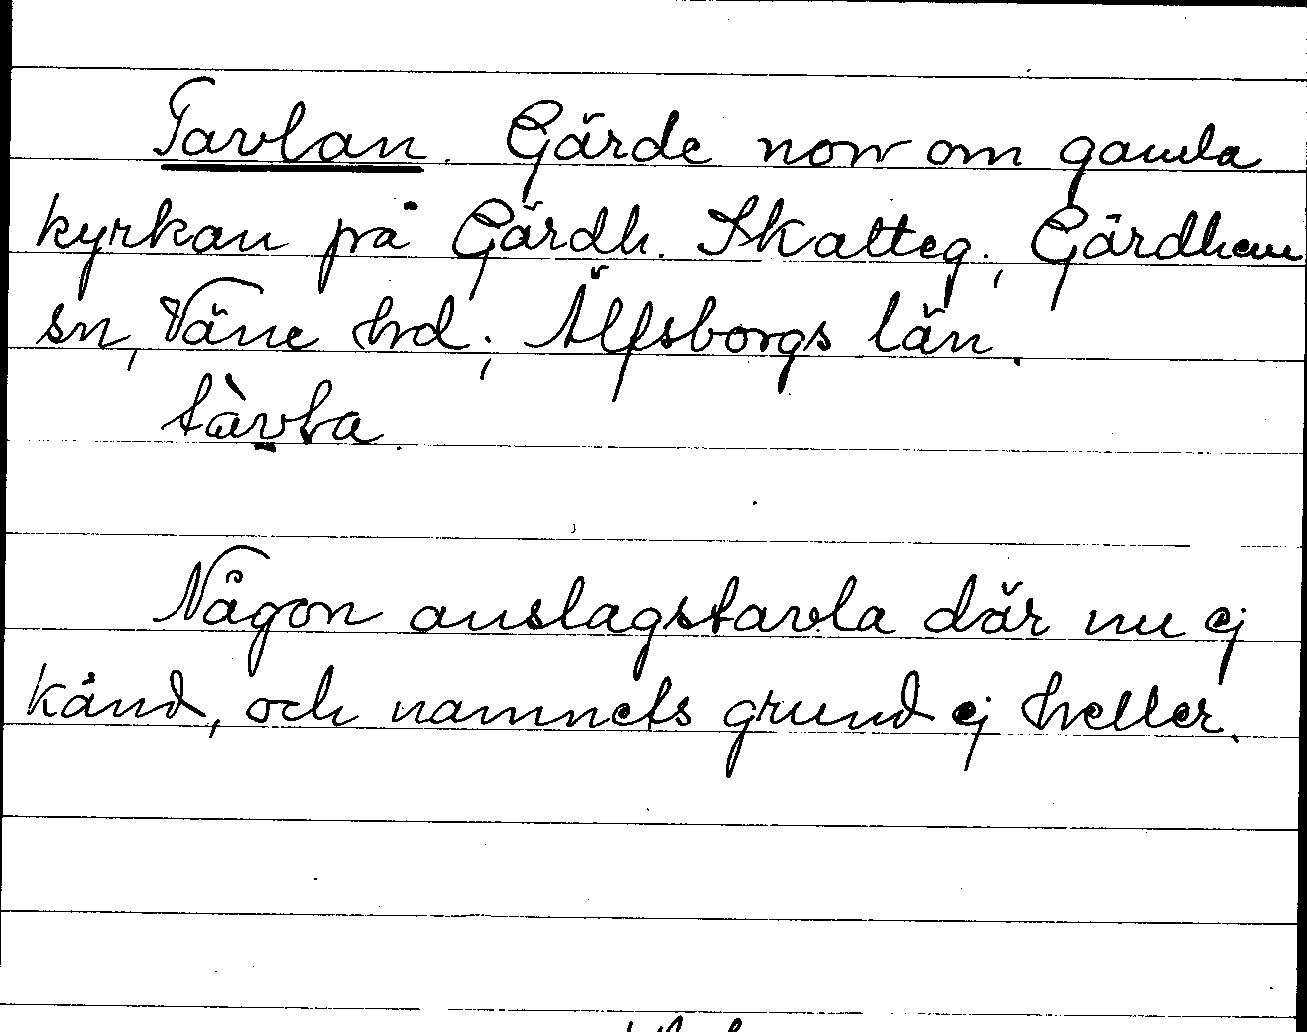 Tavlan. Gärde norr om gamla
kyrkan på Gärdh. Skatteg., Gärdhem
sn, Väne hd; Älfsborgs län.
tàvła.
Någon anslagstavla där nu ej
känd, och namnets grund ej heller.